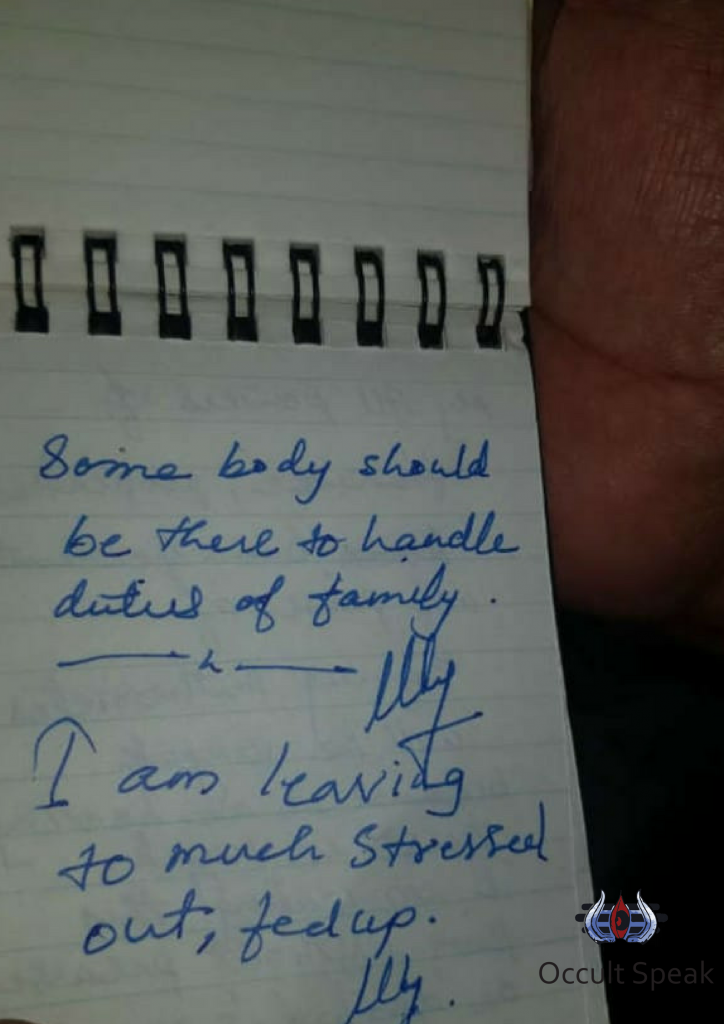 Some body should
be there to handle
duties of family.
I am leaving
to much Stressed
out, fedup.
Occult Speak